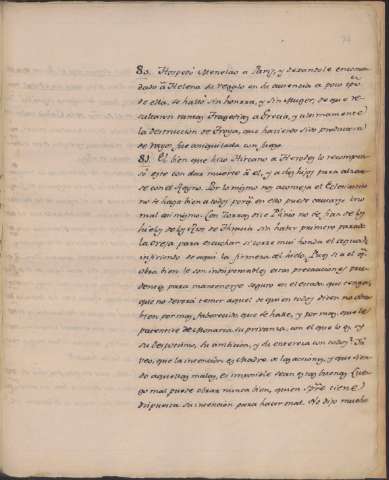 80. Hospedó Menelao a Paris, y dexandole encomen
dado á Helena de regalo en su ausencia a poco tpo
de esta, se halló sin honrra, y sin Muger, de que re
sultaron tantas Tragedias, a Grecia, y ultimamente
la destruccion de Troya, que haviendo sido
de rayos fue aniquilada con fuego.
81. El bien que hizo Hircano a Herodes lo recompen
só este con dar muerte á el, y a sus hijos para alzar
se con el Reyno. Por lo mismo nos aconseja el Eclesiastico
no se haga bien a todos porq. en ello puede causarse uno
mal asi mismo. Las Zorras dice Plinio no se fian de los
hielos de los Rios de Thracia sin haber primero parado
la oreja para escuchar si corre muy honda el agua
infiriendo de aqui la firmeza del hielo. Pues si a el q.
obra bien le son indispensables estas precauciones pru
dentes para mantenerse seguro en el estado que tenga,
que no deverá temer aquel de quien todos dicen no obra
bien por muy favorecido que se halle, y por mas que le
parentize de Monarca su privanza, con el que lo es, y
su despotismo, su ambicion, y su entereza con todos? Ya
veo, que la intencion es Madre de las acciones, y que sien
do aquellas malas, es imposible sean estas buenas, Lue
go mal puede obrar nunca bien, quien spre tiene
dispuesta su intencion para hacer mal. No dixo mucho